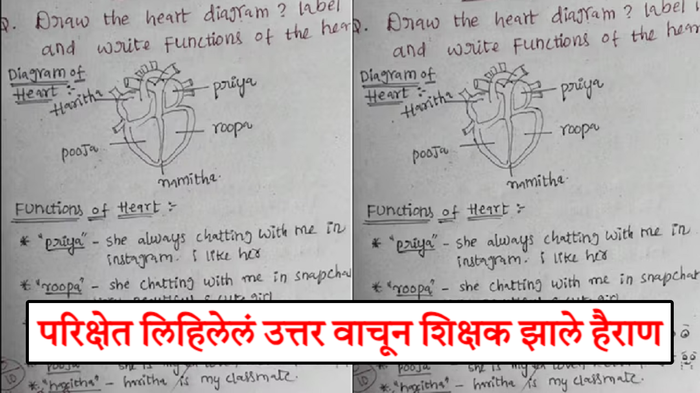 Q. Draw the heart diagram? label
and write Functions of the hear
Diagram of
Heart :-
Haritha
priya
pooja
roopa
namitha.
Functions of Heart :-
* "priya" - she always chatting with me in
instagram. i like her
* "roopa" - she chatting with me in snapchat
Draw the heart diagram? label
and write Functions of the hear
Diagram of
Heart :-
Haritha
priya
pooja
roopa
namitha.
Functions of Heart :-
* "priya" - she always chatting with me in
instagram. i like her
* "roopa" - she chatting with me in snapchat
परिक्षेत लिहिलेलं उत्तर वाचून शिक्षक झाले हैराण
pooja
* "haritha" - haritha is my classmate.
pooja
* "haritha" - haritha is my classmate.